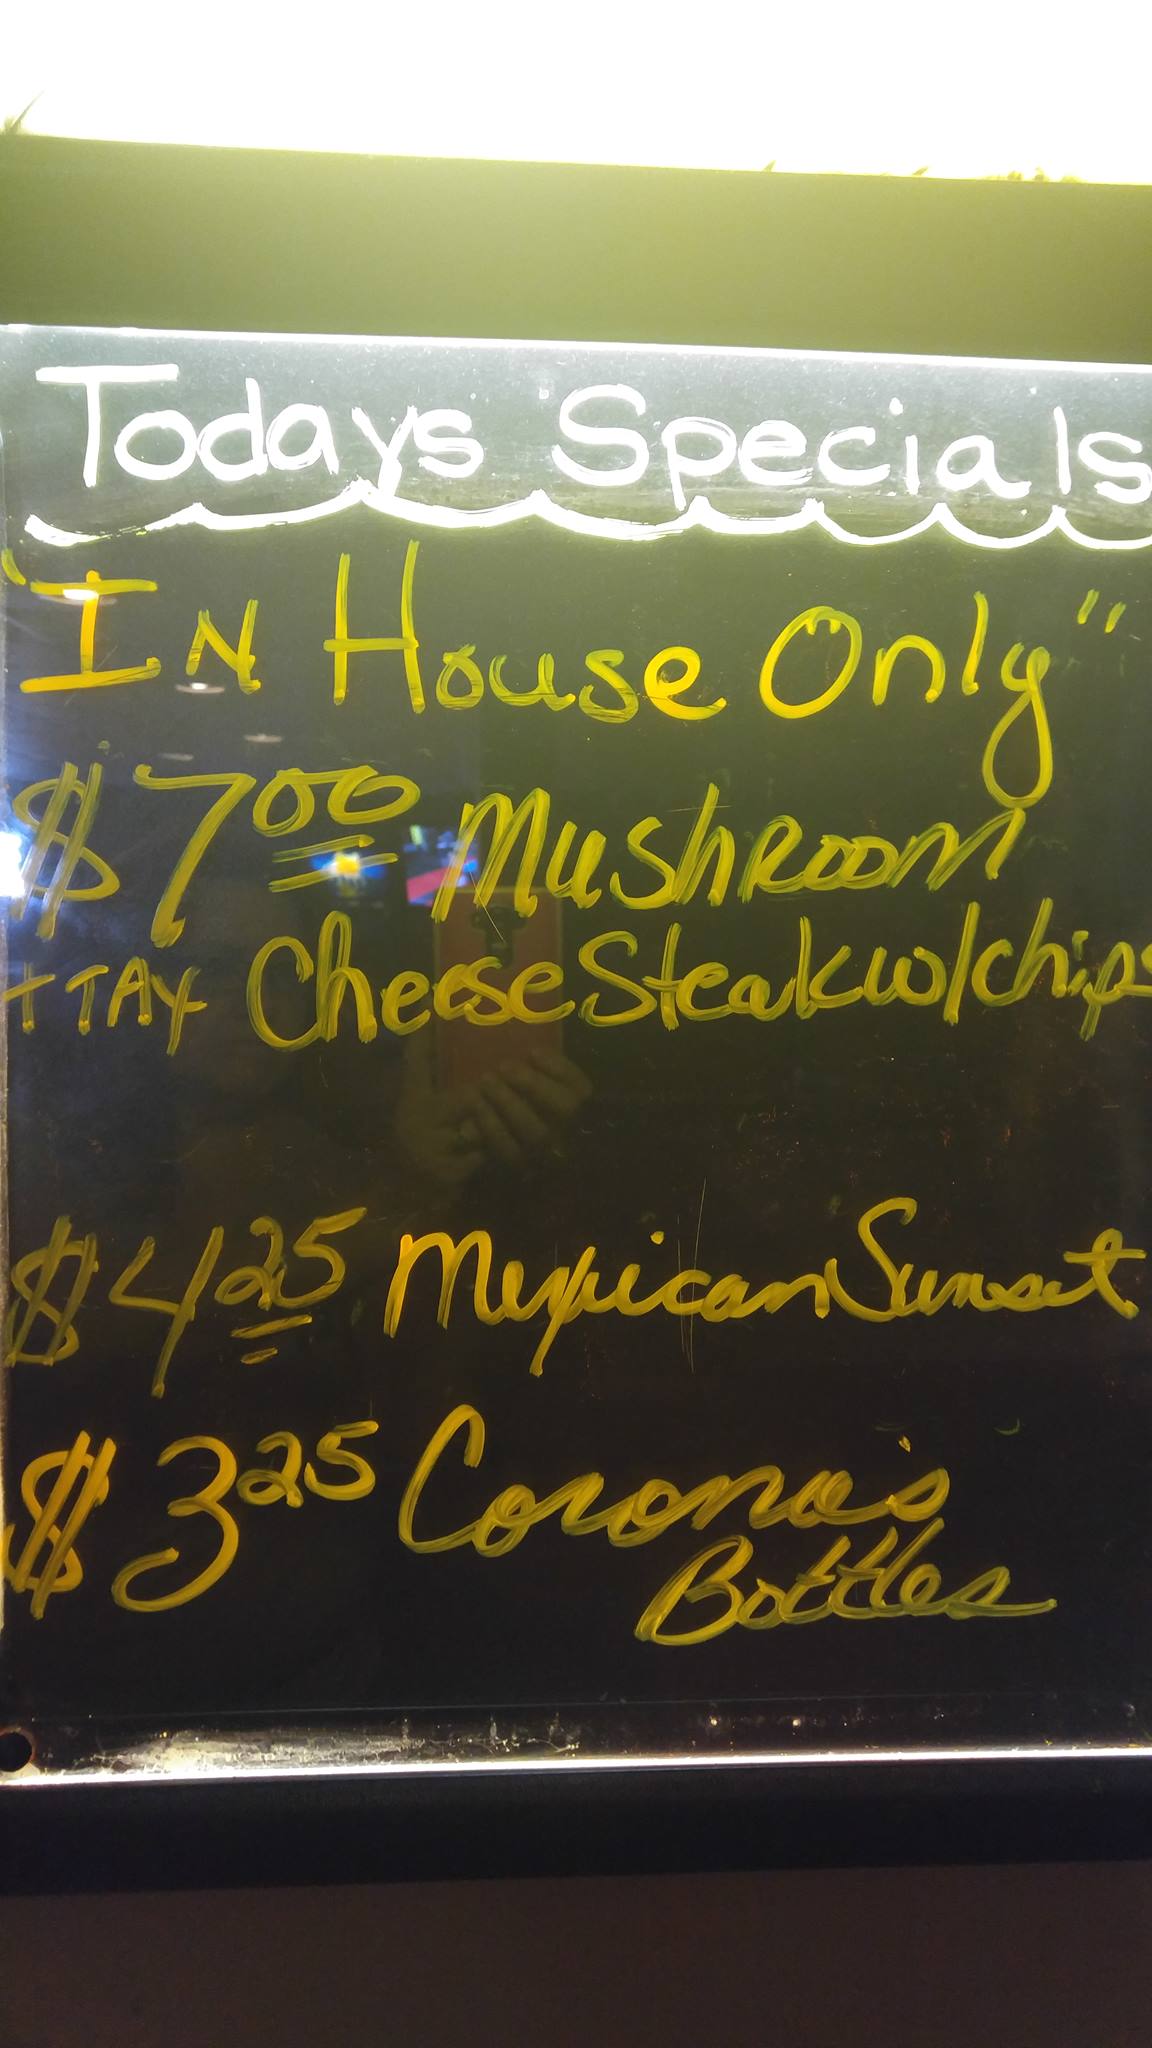 Todays Specials
"In House Only"
$7.00 Mushroom
+ TAX Cheese Steak w/chips
$4.25 Mexican Sunset
$3.25 Corona's
Bottles